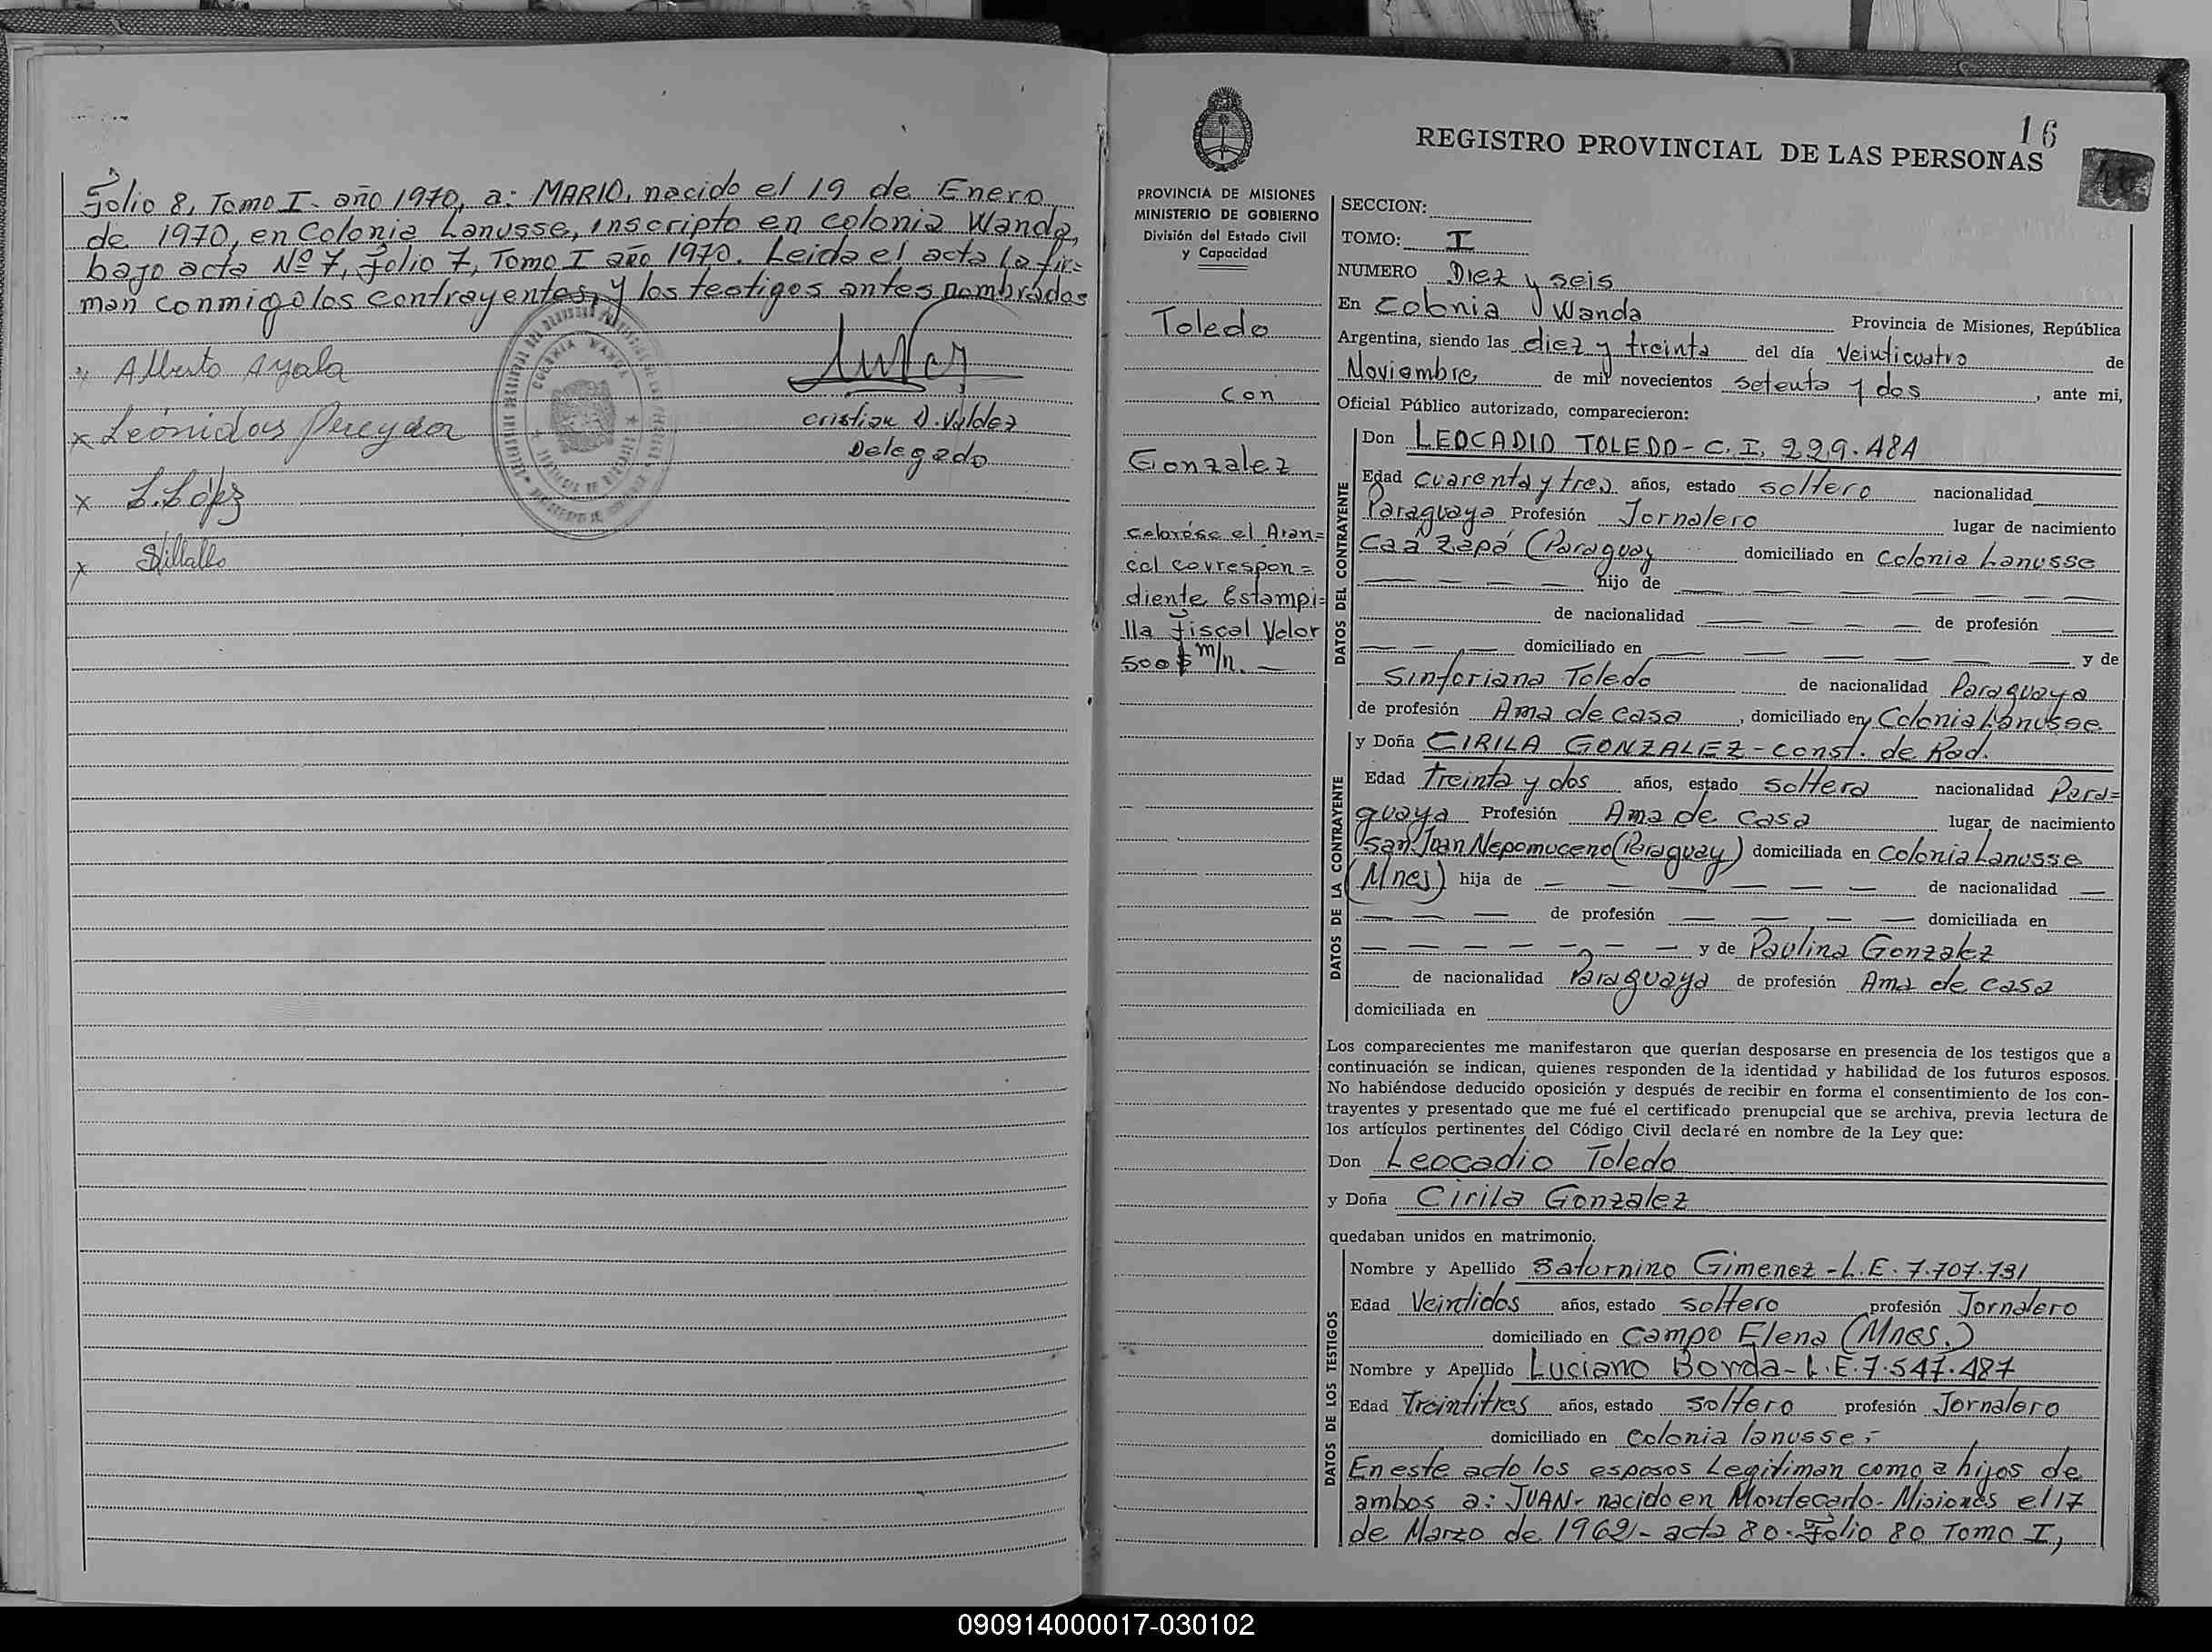 Folio 8, Tomo I - año 1970, a: MARIO, nacido el 19 de Enero
de 1970, en Colonia Lanusse, inscripto en colonia Wanda,
bajo acta Nº 7, folio 7, Tomo I año 1970. Leida el acta la fir=
man conmigo los contrayentes, y los testigos antes nombrados
Alberto Ayala
x Leónidas Pereyra
x L. López
x
Cristian D. Valdez
Delegado
COLONIA WANDA
16
REGISTRO PROVINCIAL DE LAS PERSONAS
PROVINCIA DE MISIONES
MINISTERIO DE GOBIERNO
División del Estado Civil
y Capacidad
Toledo
con
Gonzalez
cobróse el Aran=
cel correspon=
diente Estampi=
lla fiscal Valor
500 $ m/n. —
SECCION:
TOMO: I
NUMERO Diez y seis
En Colonia Wanda Provincia de Misiones, República
Argentina, siendo las diez y treinta del día Veinticuatro de
Noviembre de mil novecientos setenta y dos, ante mi,
Oficial Público autorizado, comparecieron:
DATOS DEL CONTRAYENTE
Don LEOCADIO TOLEDO - C.I. 229.484
Edad cuarenta y tres años, estado soltero nacionalidad
Paraguaya Profesión Jornalero lugar de nacimiento
Caá Zapá (Paraguay domiciliado en Colonia Lanusse
— — — — hijo de — — — — — —
de nacionalidad — — — — de profesión —
— — — domiciliado en — — — — — y de
Sinforiana Toledo de nacionalidad Paraguaya
de profesión Ama de casa, domiciliado en Colonia Lanusse
DATOS DE LA CONTRAYENTE
y Doña CIRILA GONZALEZ - const. de Rad.
Edad treinta y dos años, estado soltera nacionalidad Para=
guaya Profesión Ama de casa lugar de nacimiento
San Juan Nepomuceno (Paraguay) domiciliada en Colonia Lanusse
(Mnes) hija de — — — — — — de nacionalidad —
— — — de profesión — — — — domiciliada en
— — — — — — — y de Paulina Gonzalez
de nacionalidad Paraguaya de profesión Ama de casa
domiciliada en
Los comparecientes me manifestaron que querían desposarse en presencia de los testigos que a
continuación se indican, quienes responden de la identidad y habilidad de los futuros esposos.
No habiéndose deducido oposición y después de recibir en forma el consentimiento de los con-
trayentes y presentado que me fué el certificado prenupcial que se archiva, previa lectura de
los artículos pertinentes del Código Civil declaré en nombre de la Ley que:
Don Leocadio Toledo
y Doña Cirila Gonzalez
quedaban unidos en matrimonio.
DATOS DE LOS TESTIGOS
Nombre y Apellido Saturnino Gimenez - L.E. 7.707.731
Edad Veintidos años, estado soltero profesión Jornalero
domiciliado en Campo Elena (Mnes.)
Nombre y Apellido Luciano Borda - L.E. 7.547.487
Edad Treintitres años, estado soltero profesión Jornalero
domiciliado en Colonia lanusse,-
En este acto los esposos Legitiman como a hijos de
ambos a: JUAN - nacido en Montecarlo - Misiones el 17
de Marzo de 1962 - acta 80 - Folio 80 Tomo I,
090914000017-030102